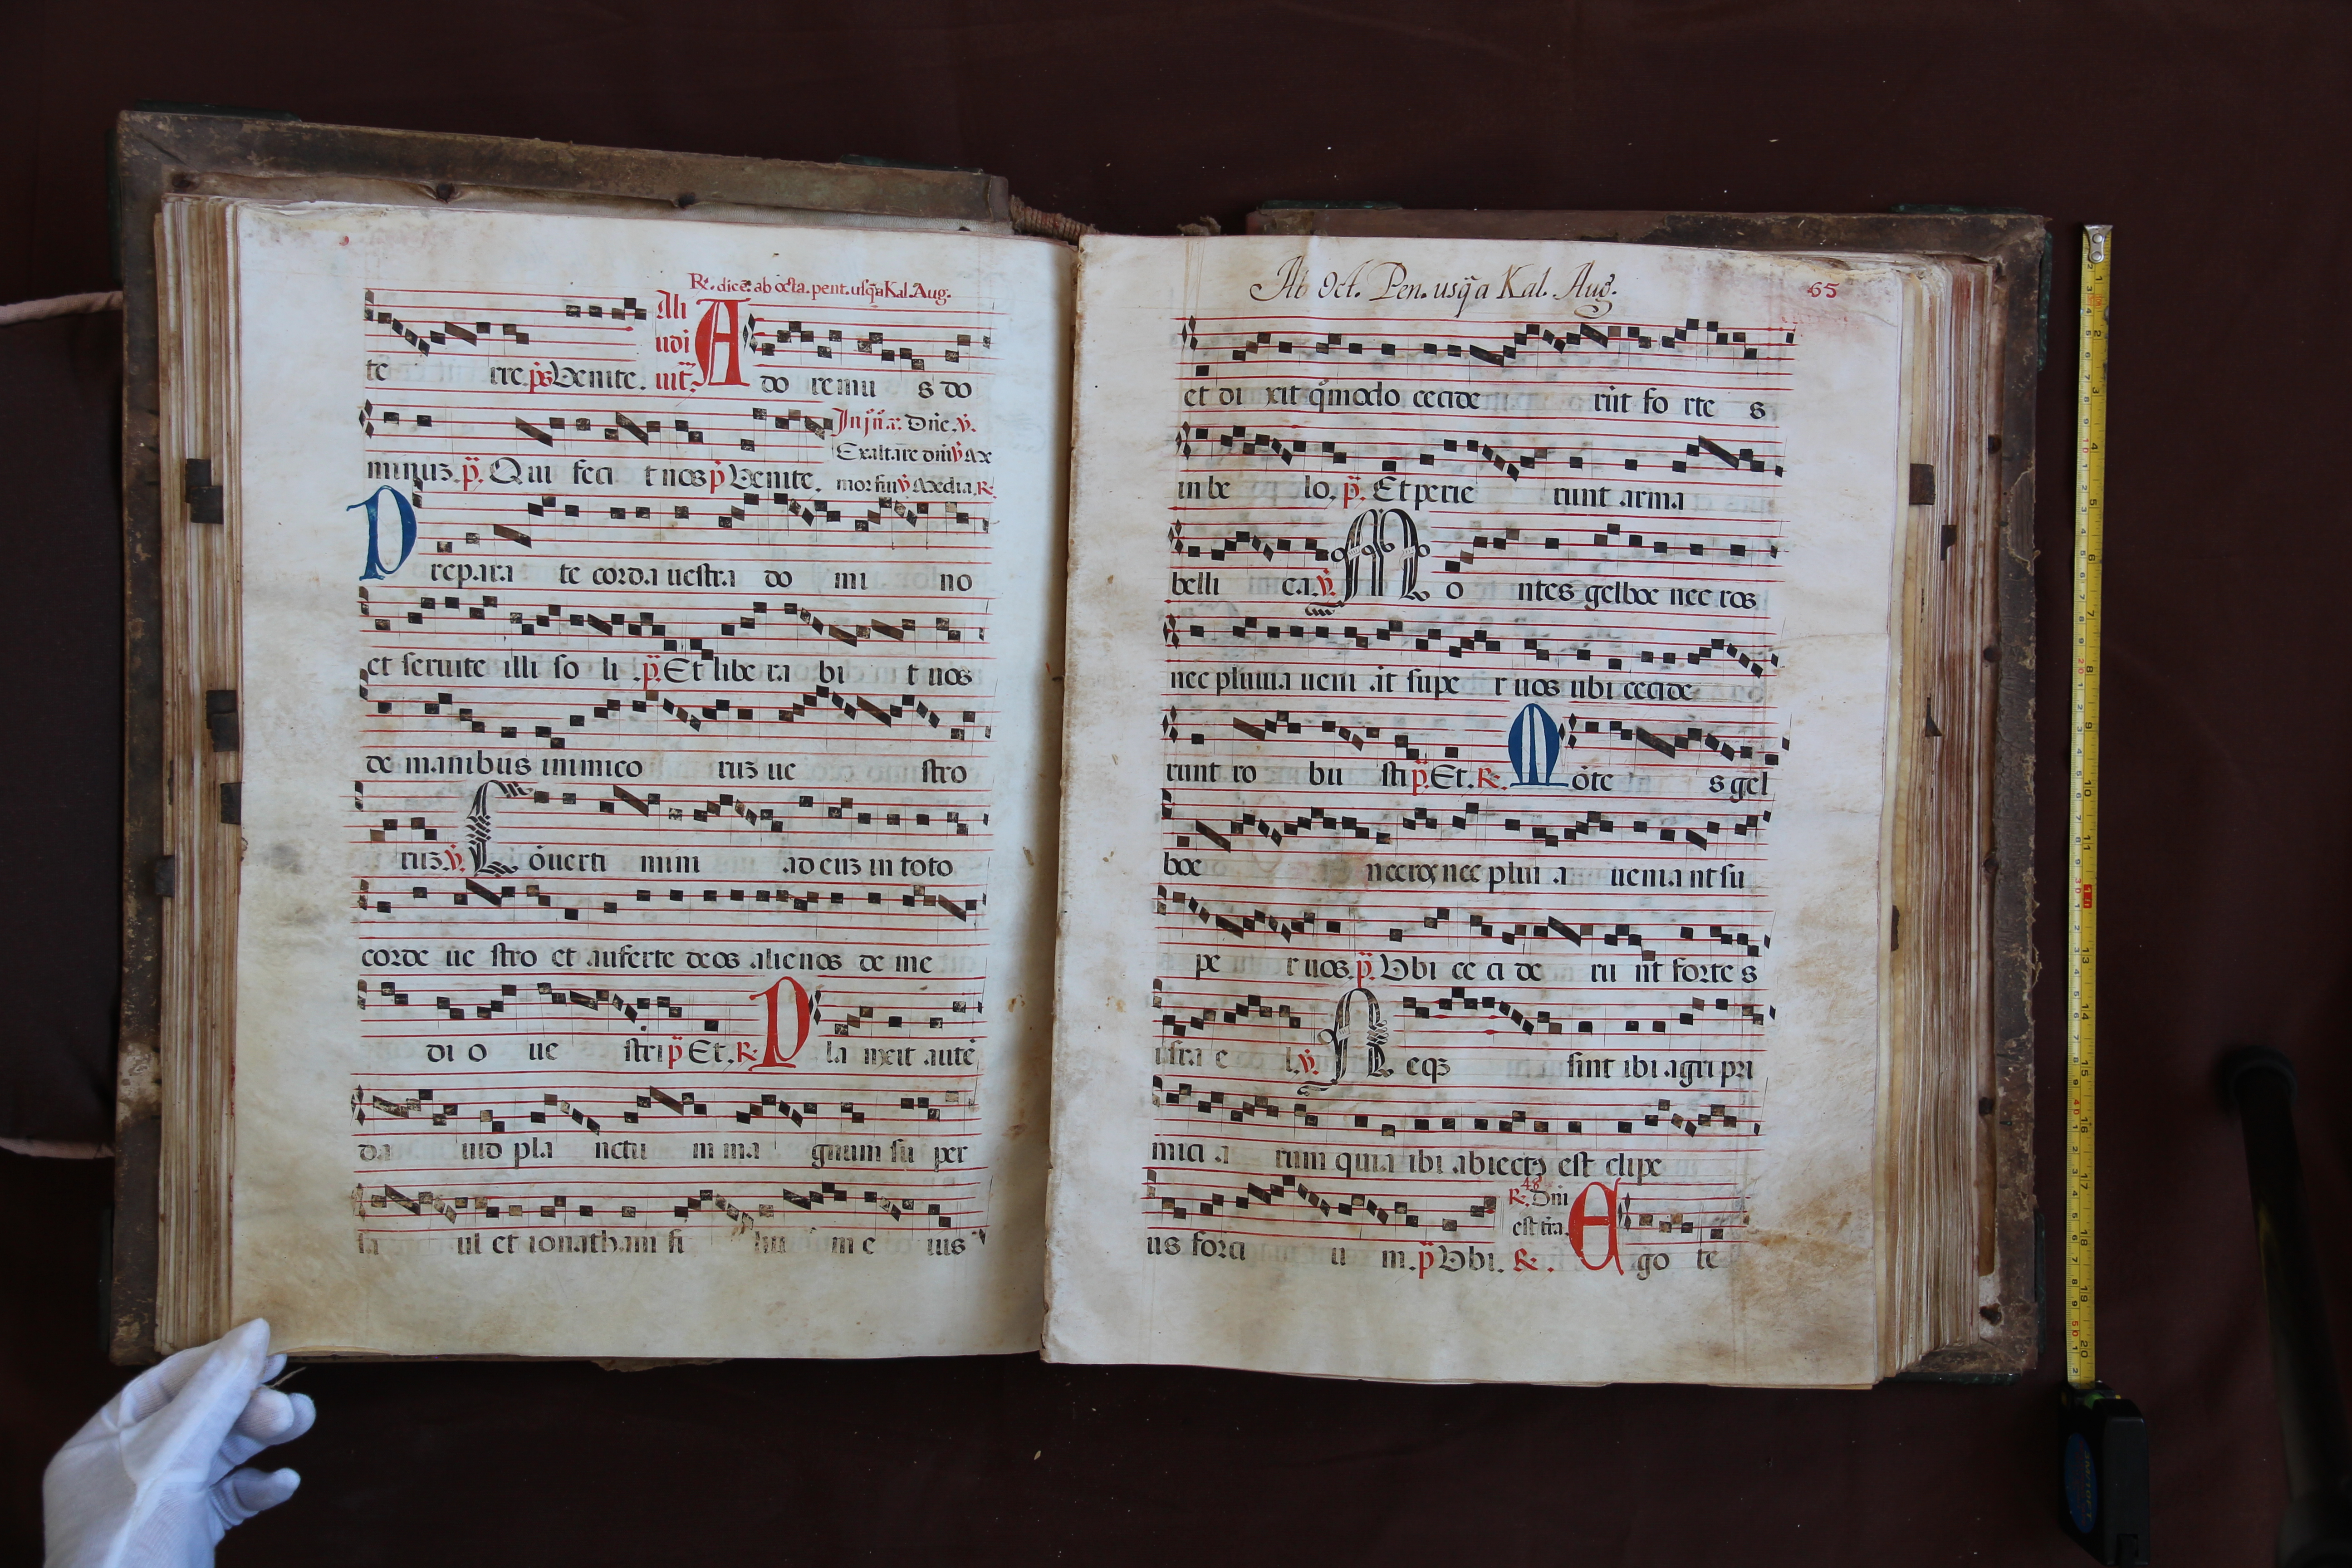 R. dice. ab octa. pent. usq̃a Kal. Aug.
Ali
udi
te rre. ps Venite. uit̃. A do remu s do
In j̃ñr. Dñe. v.
Exaltare dñi v Ax
minuz. p̃. Qui feci t nos p̃ Venite. mor fui v Media. R.
P repara te corda uestra do mi no
et seruite illi so li. p̃. Et libe ra bi t uos
de manibus inimico ruz ue stro
ruz. v. C õuerti mini ad euz in toto
corde ue stro et auferte deos alienos de me
di o ue stri p̃ Et. R. P la nxit autẽ
da uid pla nctu m ma gnum su per
sa ul et ionatham fi liu m e ius
Ab Oct. Pen. usq̃ a Kal. Aug.
65
et di xit q̃modo cecide rũt fo rte s
in be lo. p̃. Et perie runt arma
belli ca. v. M o ntes gelboe nec ros
nec pluuia ueni ãt supe r uos ubi cecide
runt ro bu sti p̃. Et. R. M õte s gel
boe nec ros nec plui a ueniant su
pe r uos. p̃. Vbi ce ci de ru nt forte s
isra e l. v. N eqz sint ibi agri pri
mici a rum quia ibi abiectꝰ est clipe
48
R. Dñi
est tr̃a.
us forti u m. p̃ Vbi. R. E go te